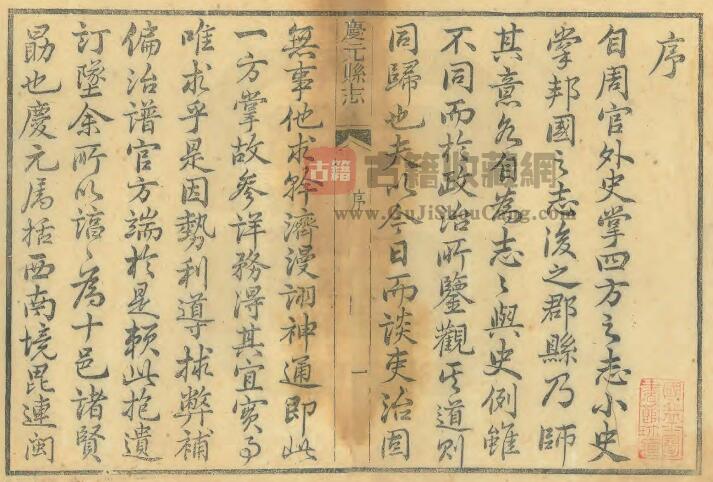 序
自周官外史掌四方之志小史
掌邦國之志後之郡縣乃師
其意各自為志志與史例雖
不同而於政治所鑒觀其道則
同歸也夫以今日而談吏治固
慶元縣志
序
一
無事他求幹濟漫詡神通即此
一方掌故參詳務得其宜實事
唯求乎是因勢利導捄弊補
偏治譜官方端於是賴此抱遺
訂墜余所以諄諄為十邑諸賢
勗也慶元居括西南境毘連閩
古籍
古籍收藏網
www.GuJiShouCang.com